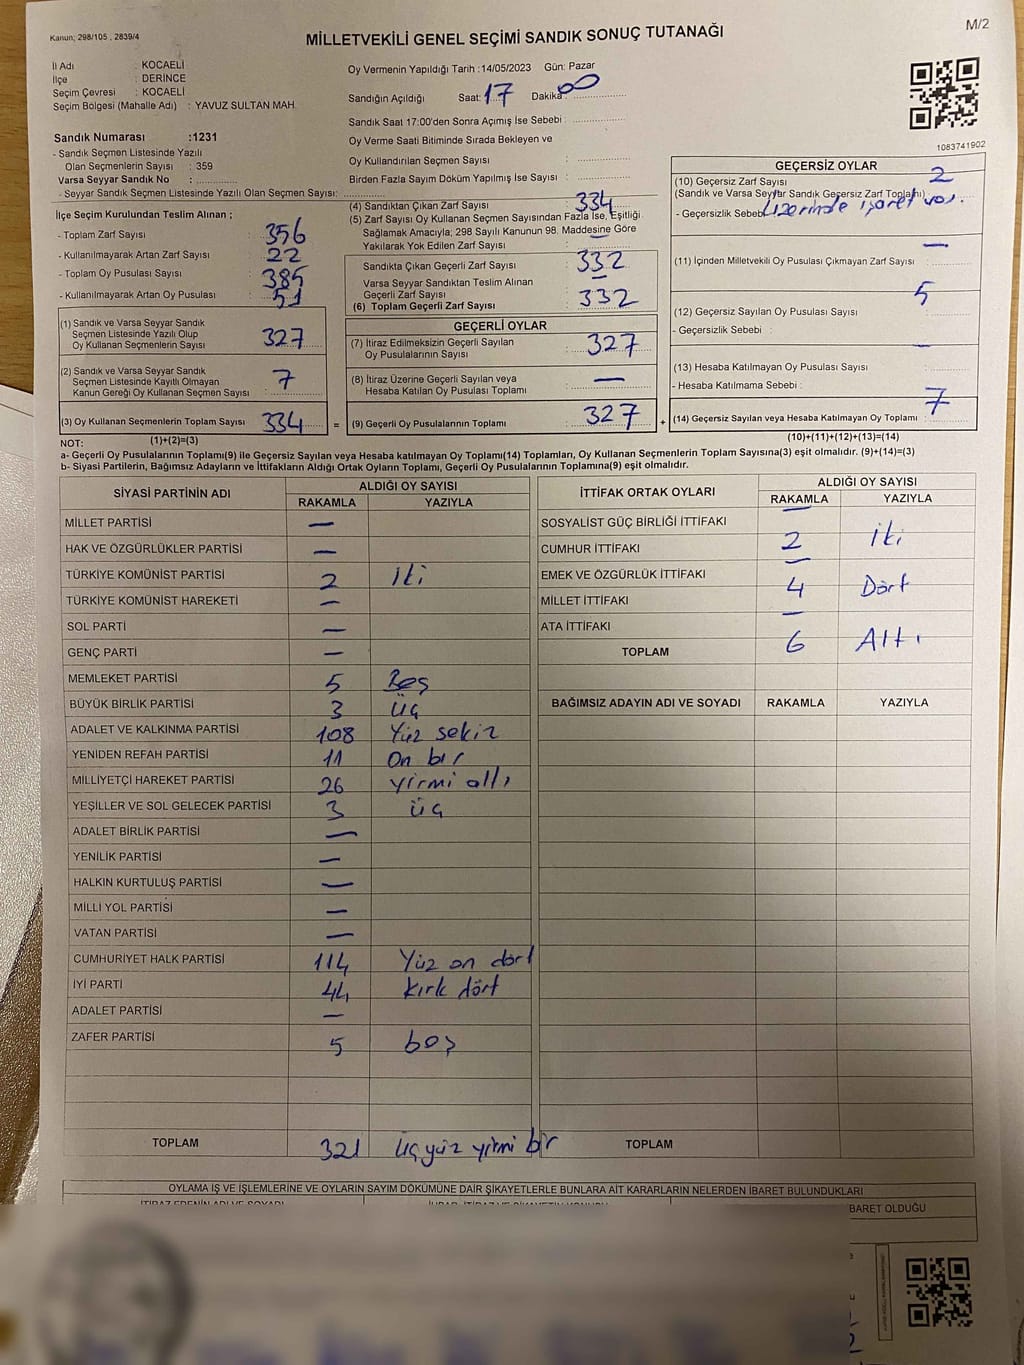 M/2
Kanun; 298/105 , 2839/4
MİLLETVEKİLİ GENEL SEÇİMİ SANDIK SONUÇ TUTANAĞI
İl Adı : KOCAELİ
İlçe : DERİNCE
Seçim Çevresi : KOCAELİ
Seçim Bölgesi (Mahalle Adı) : YAVUZ SULTAN MAH.
Sandık Numarası :1231
- Sandık Seçmen Listesinde Yazılı
Olan Seçmenlerin Sayısı : 359
Varsa Seyyar Sandık No :
- Seyyar Sandık Seçmen Listesinde Yazılı Olan Seçmen Sayısı:
Oy Vermenin Yapıldığı Tarih :14/05/2023 Gün: Pazar
Sandığın Açıldığı Saat: 17 Dakika 00
Sandık Saat 17:00'den Sonra Açımış İse Sebebi :
Oy Verme Saati Bitiminde Sırada Bekleyen ve
Oy Kullandırılan Seçmen Sayısı :
Birden Fazla Sayım Döküm Yapılmış İse Sayısı :
1083741902
İlçe Seçim Kurulundan Teslim Alınan ;
- Toplam Zarf Sayısı : 356
- Kullanılmayarak Artan Zarf Sayısı : 22
- Toplam Oy Pusulası Sayısı : 385
- Kullanılmayarak Artan Oy Pusulası : 51
(1) Sandık ve Varsa Seyyar Sandık
Seçmen Listesinde Yazılı Olup
Oy Kullanan Seçmenlerin Sayısı : 327
(2) Sandık ve Varsa Seyyar Sandık
Seçmen Listesinde Kayıtlı Olmayan
Kanun Gereği Oy Kullanan Seçmen Sayısı : 7
(3) Oy Kullanan Seçmenlerin Toplam Sayısı : 334
(4) Sandıktan Çıkan Zarf Sayısı : 334
(5) Zarf Sayısı Oy Kullanan Seçmen Sayısından Fazla İse, Eşitliği
Sağlamak Amacıyla; 298 Sayılı Kanunun 98. Maddesine Göre
Yakılarak Yok Edilen Zarf Sayısı : —
Sandıkta Çıkan Geçerli Zarf Sayısı : 332
Varsa Seyyar Sandıktan Teslim Alınan
Geçerli Zarf Sayısı : —
(6) Toplam Geçerli Zarf Sayısı : 332
GEÇERLİ OYLAR
(7) İtiraz Edilmeksizin Geçerli Sayılan
Oy Pusulalarının Sayısı : 327
(8) İtiraz Üzerine Geçerli Sayılan veya
Hesaba Katılan Oy Pusulası Toplamı : —
= (9) Geçerli Oy Pusulalarının Toplamı : 327
GEÇERSİZ OYLAR
(10) Geçersiz Zarf Sayısı 2
(Sandık ve Varsa Seyyar Sandık Geçersiz Zarf Toplamı)
- Geçersizlik Sebebi Üzerinde işaret var.
(11) İçinden Milletvekili Oy Pusulası Çıkmayan Zarf Sayısı : —
(12) Geçersiz Sayılan Oy Pusulası Sayısı : 5
- Geçersizlik Sebebi :
(13) Hesaba Katılmayan Oy Pusulası Sayısı : —
- Hesaba Katılmama Sebebi :
+ (14) Geçersiz Sayılan veya Hesaba Katılmayan Oy Toplamı : 7
NOT: (1)+(2)=(3) (10)+(11)+(12)+(13)=(14)
a- Geçerli Oy Pusulalarının Toplamı(9) ile Geçersiz Sayılan veya Hesaba katılmayan Oy Toplamı(14) Toplamları, Oy Kullanan Seçmenlerin Toplam Sayısına(3) eşit olmalıdır. (9)+(14)=(3)
b- Siyasi Partilerin, Bağımsız Adayların ve İttifakların Aldığı Ortak Oyların Toplamı, Geçerli Oy Pusulalarının Toplamına(9) eşit olmalıdır.
SİYASİ PARTİNİN ADI ALDIĞI OY SAYISI
RAKAMLA YAZIYLA
MİLLET PARTİSİ —
HAK VE ÖZGÜRLÜKLER PARTİSİ —
TÜRKİYE KOMÜNİST PARTİSİ 2 iki
TÜRKİYE KOMÜNİST HAREKETİ —
SOL PARTİ —
GENÇ PARTİ —
MEMLEKET PARTİSİ 5 Beş
BÜYÜK BİRLİK PARTİSİ 3 üç
ADALET VE KALKINMA PARTİSİ 108 Yüz sekiz
YENİDEN REFAH PARTİSİ 11 On bir
MİLLİYETÇİ HAREKET PARTİSİ 26 yirmi altı
YEŞİLLER VE SOL GELECEK PARTİSİ 3 üç
ADALET BİRLİK PARTİSİ —
YENİLİK PARTİSİ —
HALKIN KURTULUŞ PARTİSİ —
MİLLİ YOL PARTİSİ —
VATAN PARTİSİ —
CUMHURİYET HALK PARTİSİ 114 Yüz on dört
İYİ PARTİ 44 kırk dört
ADALET PARTİSİ —
ZAFER PARTİSİ 5 beş
TOPLAM 321 üçyüz yirmi bir
İTTİFAK ORTAK OYLARI ALDIĞI OY SAYISI
RAKAMLA YAZIYLA
SOSYALİST GÜÇ BİRLİĞİ İTTİFAKI —
CUMHUR İTTİFAKI 2 iki
EMEK VE ÖZGÜRLÜK İTTİFAKI —
MİLLET İTTİFAKI 4 Dört
ATA İTTİFAKI —
TOPLAM 6 Altı
BAĞIMSIZ ADAYIN ADI VE SOYADI RAKAMLA YAZIYLA
TOPLAM
OYLAMA İŞ VE İŞLEMLERİNE VE OYLARIN SAYIM DÖKÜMÜNE DAİR ŞİKAYETLERLE BUNLARA AİT KARARLARIN NELERDEN İBARET BULUNDUKLARI
İTİRAZ EDENİN ADI VE SOYADI
BARET OLDUĞU